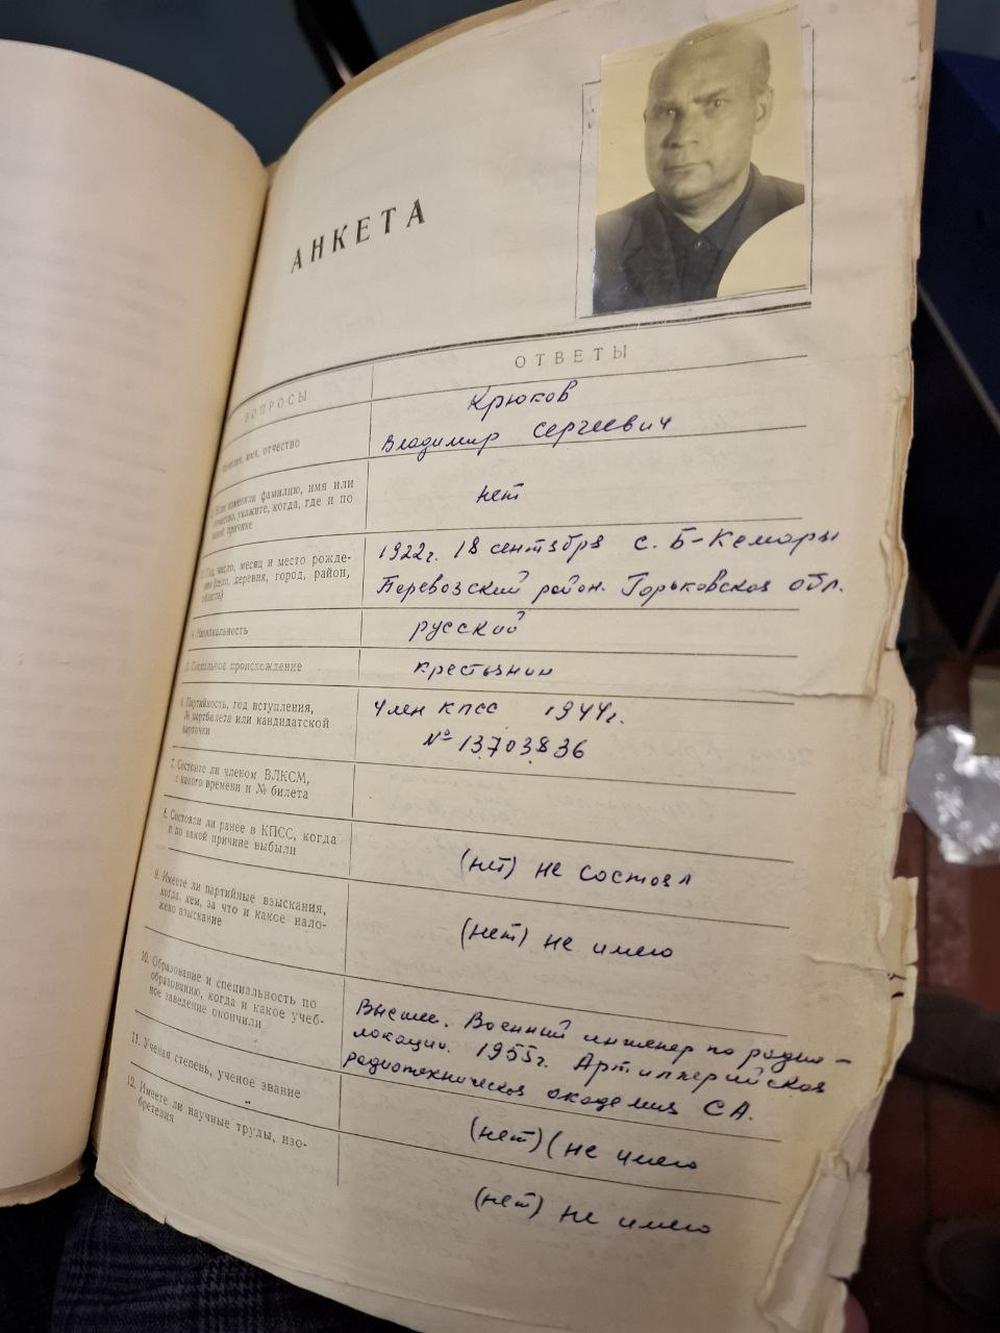 АНКЕТА
ВОПРОСЫ
ОТВЕТЫ
имя, отчество
Крюков
Владимир Сергеевич
изменяли фамилию, имя или
отчество, укажите, когда, где и по
какой причине
нет
3. Год, число, месяц и место рожде-
ния (село, деревня, город, район,
область)
1922г. 18 сентября с. Б-Кемары
Перевозский район. Горьковская обл.
4. Национальность
русский
5. Социальное происхождение
крестьянин
6. Партийность, год вступления,
№ партбилета или кандидатской
карточки
Член КПСС 1944г.
№ 13703836
7. Состоите ли членом ВЛКСМ,
с какого времени и № билета
8. Состояли ли ранее в КПСС, когда
и по какой причине выбыли
(нет) не состоял
9. Имеете ли партийные взыскания,
когда, кем, за что и какое нало-
жено взыскание
(нет) не имею
10. Образование и специальность по
образованию, когда и какое учеб-
ное заведение окончили
Высшее. Военный инженер по радио-
локации. 1955г. Артиллерийская
радиотехническая академия СА.
11. Ученая степень, ученое звание
(нет) (не имею
12. Имеете ли научные труды, изо-
бретения
(нет) не имею